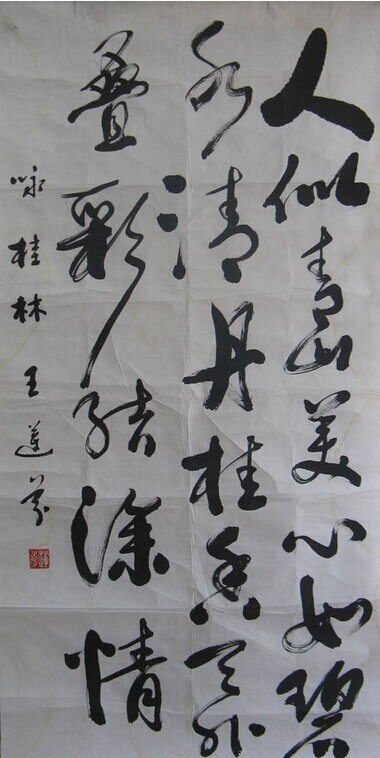 人似青山美心如碧
水清丹桂香天外
叠彩结深情
咏桂林 王莲芬